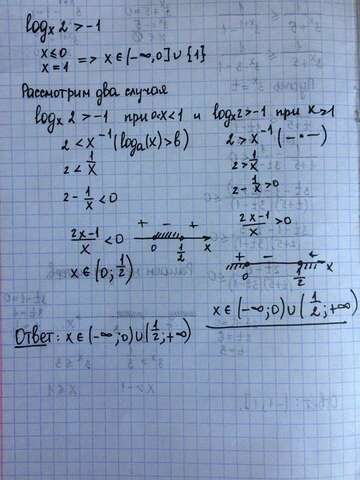 log_x 2 > -1
x ≤ 0
x = 1 => x ∈ (-∞, 0] ∪ {1}
Рассмотрим два случая
log_x 2 > -1 при 0<x<1 и log_x 2 > -1 при x > 1
2 < x^{-1} (log_a(x) > b)
2 < 1/x
2 - 1/x < 0
(2x-1)/x < 0
+ - +
0 1/2 x
x ∈ (0; 1/2)
2 > x^{-1} (— " —)
2 > 1/x
2 - 1/x > 0
(2x-1)/x > 0
+ - +
0 1/2 x
x ∈ (-∞; 0) ∪ (1/2; +∞)
Ответ: x ∈ (-∞; 0) ∪ (1/2; +∞)